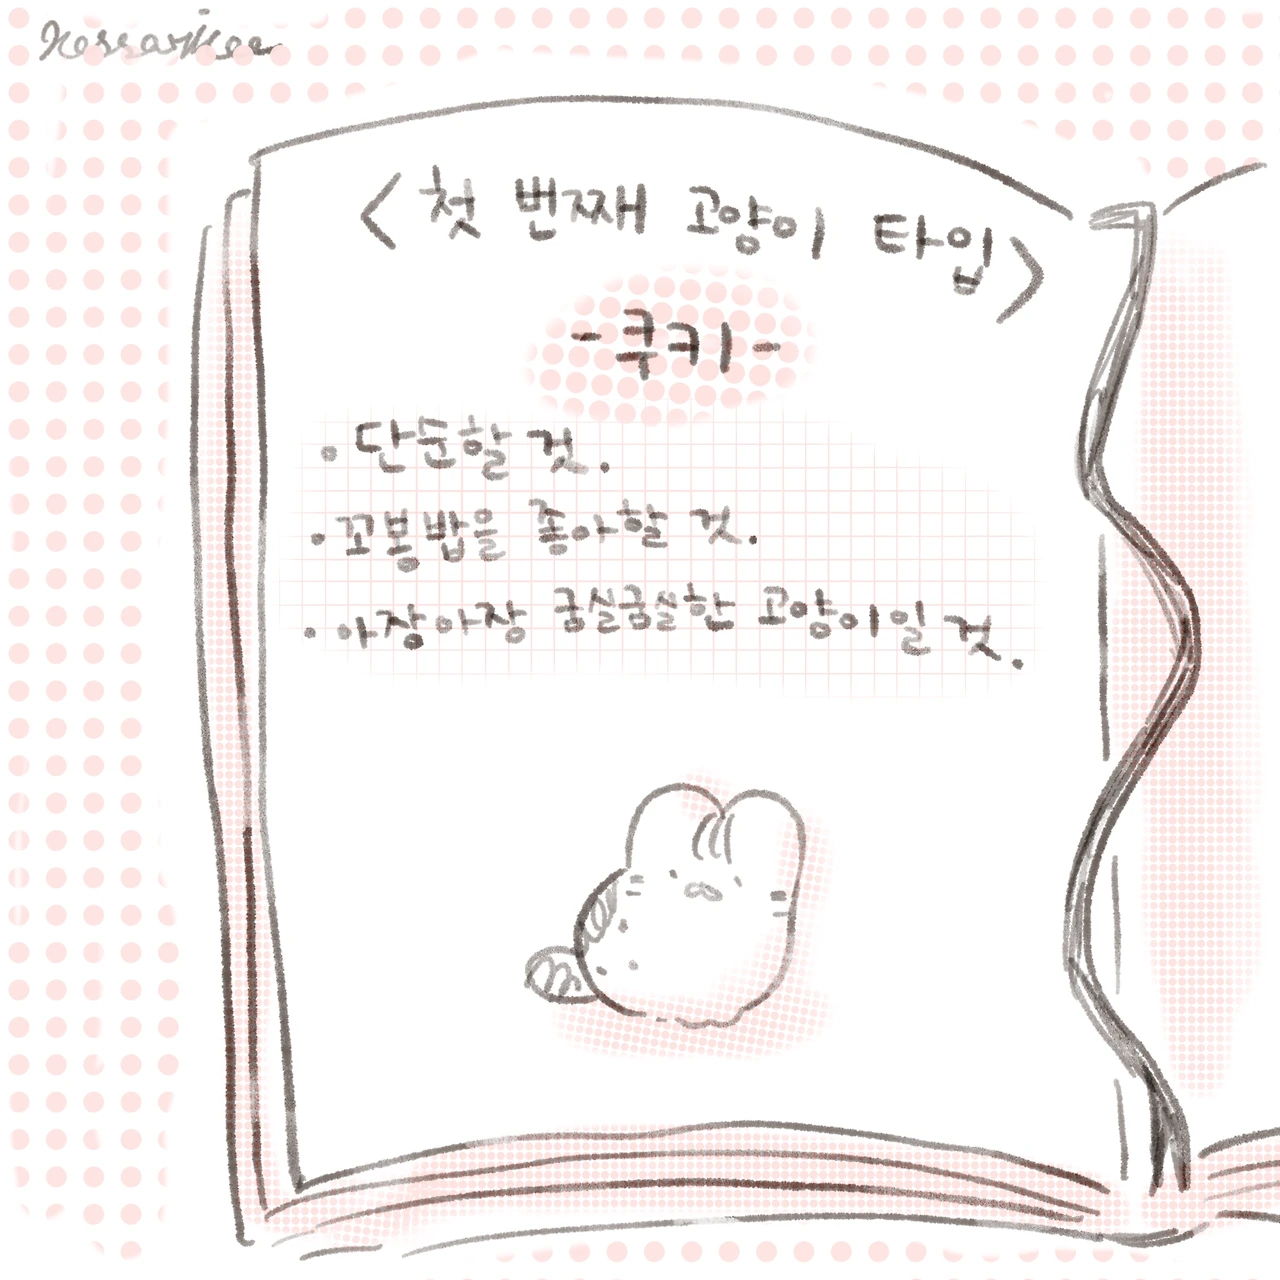 <첫 번째 고양이 타입>
-쿠키-
· 단순할 것.
· 꼬봉밥을 좋아할 것.
· 아장아장 굼실굼실한 고양이일 것.